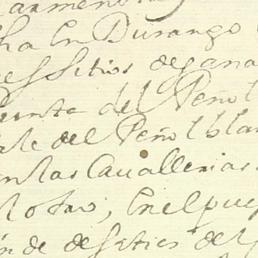 Carmeno
ha En Durango
es Sitios de gana
del Peñol
del Peñol blan
las Cavallerias
En el pue
de de sitios del